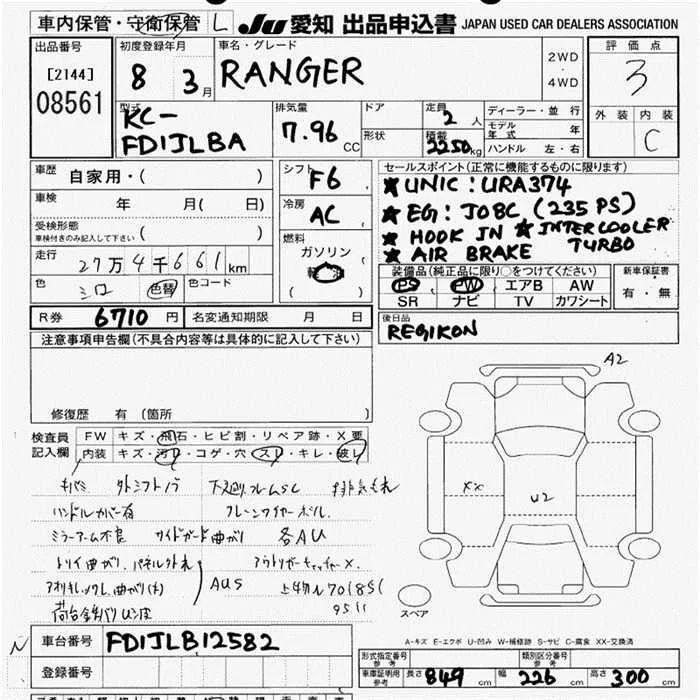 車内保管・守衛保管 L JU 愛知 出品申込書 JAPAN USED CAR DEALERS ASSOCIATION
出品番号 初度登録年月 車名・グレード 評価点
[2144] 8 3月 RANGER 2WD・4WD 3
08561
型式 排気量 ドア 定員 ディーラー・並行 外装 内装
KC-FD1JLBA 7.96 CC 形状 2人 モデル年式 年 C
積載 2250kg ハンドル 左・右
車歴 自家用・( ) シフト F6 セールスポイント(正常に機能するものに限ります)
★UNIC:URA374
車検 年 月( 日) 冷房 AC ★EG:J08C (235 PS)
受検形態 ★HOOK IN ★INTERCOOLER TURBO
車検付きのみ記入して下さい ( ) 燃料 ★AIR BRAKE
走行 27万4千661km ガソリン 軽 ( )
装備品(純正品に限り○をつけてください) 新車保証書
色 シロ 色替 色コード PS PW エアB AW 有・無
SR ナビ TV カワシート
R券 6710円 名変通知期限 月 日 後日品
REGIKON
注意事項申告欄(不具合内容等は具体的に記入して下さい)
修復歴 有 (箇所 )
A2
検査員記入欄 FW キズ・飛石・ヒビ割・リペア跡・X要
内装 キズ・汚レ・コゲ・穴・スレ・キレ・破レ
XX U2
下廻りフレームSC 排気もれ
ハンドルカバー有 クレーンワイヤー
ミラーアーム不良 サイドガード曲がり 各AU
アウトリガーキャッチャーX
AUS
スペア
A-キズ E-エクボ U-凹み W-補修跡 S-サビ C-腐食 XX-交換済
車台番号 FD1JLB12582
登録番号
形式指定番号 参考 類別区分番号 参考
車庫証明用 参考 長さ 849 cm 幅 226 cm 高さ 300 cm